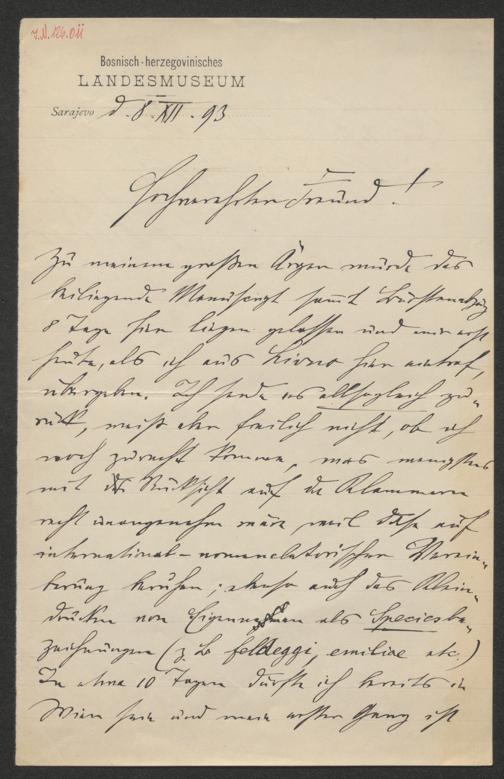 J.N. 126.011
Bosnisch-herzegovinisches
LANDESMUSEUM
Sarajevo d. 8. XII. 93
Hochverehrter Freund!
Zu meinem großen Ärger wurde das
beiliegende Manuscript sammt Bürstenabzug
8 Tage hier liegen gelassen und mir erst
heute, als ich aus Livno hier eintraf,
übergeben. Ich sende es allsogleich zu-
rück, weiß aber freilich nicht, ob ich
noch zurecht komme, was wenigstens
mit Rücksicht auf die Klammern
recht unangenehm wäre, weil diese auf
international-nomenclatorischer Verein-
barung beruhen; ebenso auch das Klein-
drucken von Eigennamen als Speciesbe-
zeichnungen (z. B. feldeggi, emiliae etc.)
In etwa 10 Tagen dürfte ich bereits in
Wien sein und mein erster Gang ist